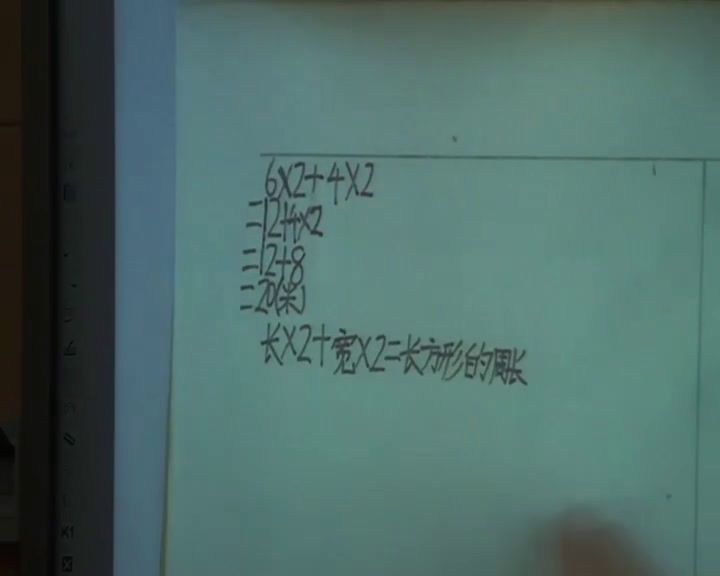 6×2+4×2
=12+4×2
=12+8
=20(米)
长×2+宽×2=长方形的周长
K1